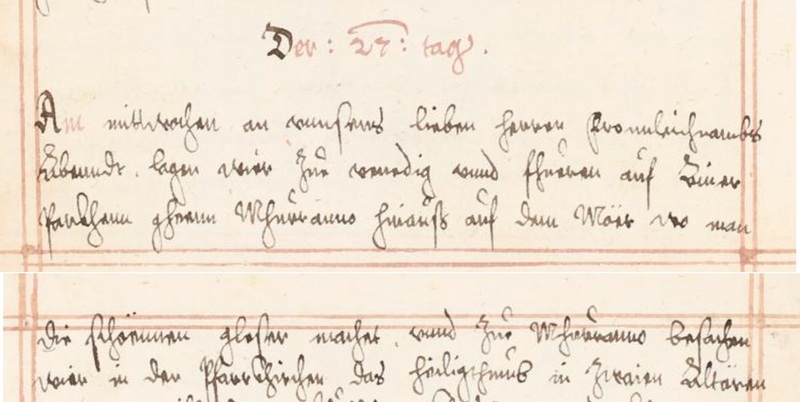 Der : 27 : tag .
Am mittwochen an vnnsers lieben herren Fronnleichnambs
Abenndt . lagen wier zue venedig vnnd fhueren auf Ainer
Parkhenn gheenn Mhurranno hinauß auf dem Möer wo man
die schöennen gleser machet . vnnd zue Mhurranno besachen
wier in der Pfarrkhirchen das heiligthumb in zwaien Altären